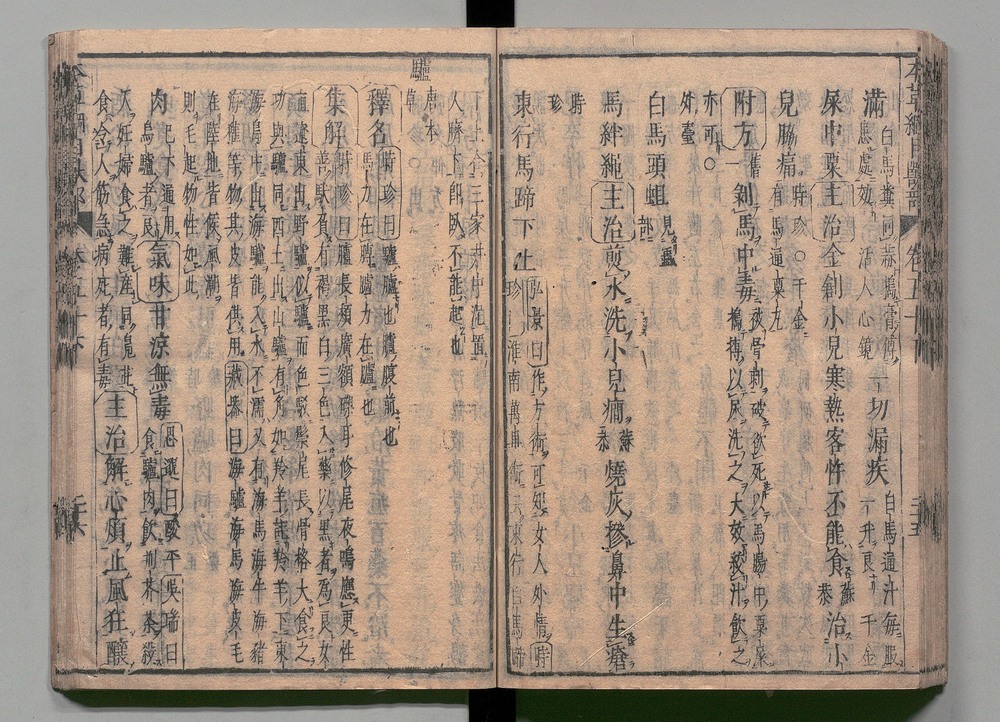 滿
白馬糞同蒜搗膏傅
患處效 活人心鏡
一切漏疾
白馬通汁每服
一升良 千金
屎中粟主治金創小兒寒熱客忤不能食
蘇恭
治小
兒脇痛
時珍○千金
有馬通粟丸
附方
舊一
剝馬中毒
被骨刺破欲死以馬腸中粟屎
搗傅以尿洗之大效絞汁飲之
亦可○
外臺
白馬頭蛆
見蟲部
馬絆繩主治煎水洗小兒癇
蘇恭
燒灰摻鼻中生瘡
時
珍
東行馬蹄下土
弘景曰作方術可知女人外情時
珍曰淮南萬畢術云東行白馬蹄
下土合三家井中泥置
人臍下卽臥不能起也
驢
唐本草
釋名
時珍曰驢臚也臚腹前也
馬力在膊驢力在臚也
集解
時珍曰驢長頰廣額磔耳修尾夜鳴應更性
善馱負有褐黑白三色入藥以黑者爲良女
直遼東出野驢似驢而色駁鬃尾長骨格大食之
功與驢同西土出山驢有角如羚羊詳羚羊下東
海島中出海驢能入水不濡又有海馬海牛海豬
海獾等物其皮皆供用藏器曰海驢海馬海皮毛
在陸地皆候風潮
則毛起物性如此
肉
已下通用
烏驢者良
氣味甘涼無毒
思邈曰酸平吳瑞曰
食驢肉飲荊芥茶殺
人妊婦食之難產同鳧茈
食令人筋急病死者有毒
主治解心煩止風狂釀